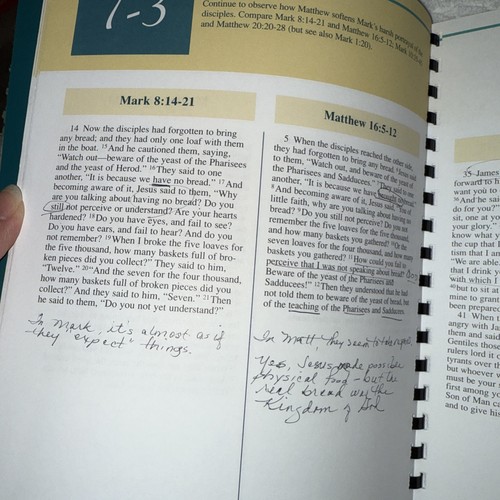 1-3
Continue to observe how Matthew softens Mark's harsh portrayal of the
disciples. Compare Mark 8:14-21 and Matthew 16:5-12, Mark
and Matthew 20:20-28 (but see also Mark 1:20).
Mark 8:14-21
14 Now the disciples had forgotten to bring
any bread; and they had only one loaf with them
in the boat. 15And he cautioned them, saying,
"Watch out—beware of the yeast of the Pharisees
and the yeast of Herod." 16They said to one
another, "It is because we have no bread." 17And
becoming aware of it, Jesus said to them, "Why
are you talking about having no bread? Do you
still not perceive or understand? Are your hearts
hardened? 18Do you have eyes, and fail to see?
Do you have ears, and fail to hear? And do you
not remember? 19When I broke the five loaves for
the five thousand, how many baskets full of bro-
ken pieces did you collect?" They said to him,
"Twelve." 20"And the seven for the four thousand,
how many baskets full of broken pieces did you
collect?" And they said to him, "Seven." 21Then
he said to them, "Do you not yet understand?"
In Mark, it's almost as if
they expect" things.
Matthew 16:5-12
5 When the disciples reached the other side,
they had forgotten to bring any bread. 6Jesus said
to them, "Watch out, and beware of the yeast of
the Pharisees and Sadducees." 7They said to one
another, "It is because we have brought no bread."
8And becoming aware of it, Jesus said, "You of
little faith, why are you talking about having no
bread? 9Do you still not perceive? Do you not
remember the five loaves for the five thousand,
and how many baskets you gathered? 10Or the
seven loaves for the four thousand, and how many
baskets you gathered? 11How could you fail to
perceive that I was not speaking about bread?
Beware of the yeast of the Pharisees and
Sadducees!" 12Then they understood that he had
not told them to beware of the yeast of bread, but
of the teaching of the Pharisees and Sadducees.
In Matt they seem to
Yes, Jesus made possible
physical food - but the
real bread was the
Kingdom of God
35 James
forward to h
want you to
36And he sai
do for you?"
sit, one at y
your glory."
know what y
the cup that I
tism that I am
"We are able.
that I drink y
with which I
40but to sit at
mine to grant
been prepared
angry with Ja
them and said
Gentiles those
rulers lord it o
tyrants over th
but whoever w
must be your
first among yo
Son of Man ca
and to give his